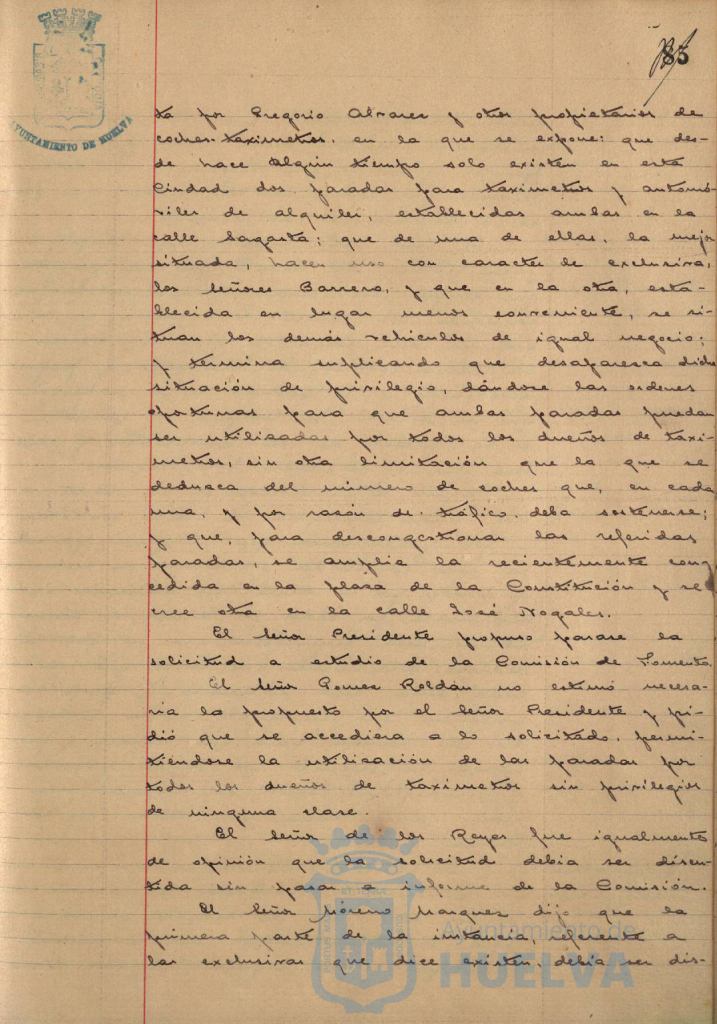 85
AYUNTAMIENTO DE HUELVA
ta por Gregorio Alvarez y otros propietarios de
coches-taximetros, en la que se expone: que des-
de hace algún tiempo solo existen en esta
Ciudad dos paradas para taximetros y automó-
viles de alquiler, establecidas ambas en la
calle Sagasta; que de una de ellas, la mejor
situada, hacen uso con caracter de exclusiva,
los señores Barrero, y que en la otra, esta-
blecida en lugar menos conveniente, se si-
tuan los demás vehiculos de igual negocio;
y termina suplicando que desaparezca dicha
situación de privilegio, dándose las ordenes
oportunas para que ambas paradas puedan
ser utilizadas por todos los dueños de taxi-
metros, sin otra limitación que la que se
deduzca del número de coches que, en cada
una, y por razón de tráfico, deba sostenerse;
y que, para descongestionar las referidas
paradas, se amplie la recientemente con-
cedida en la plaza de la Constitución y se
cree otra en la calle José Nogales.
El Señor Presidente propuso pasase la
solicitud a estudio de la Comisión de Fomento.
El Señor Gomez Roldán no estimó necesa-
ria la propuesta por el Señor Presidente y pi-
dió que se accediera a lo solicitado, permi-
tiendose la utilización de las paradas por
todos los dueños de taximetros sin privilegios
de ninguna clase.
El Señor de los Reyes fue igualmente
de opinión que la solicitud debia ser discu-
tida sin pasar a informe de la Comisión.
El Señor Moreno Marquez dijo que la
primera parte de la instancia, referente a
las exclusivas que dice existen, debia ser dis-
Ayuntamiento de
HUELVA